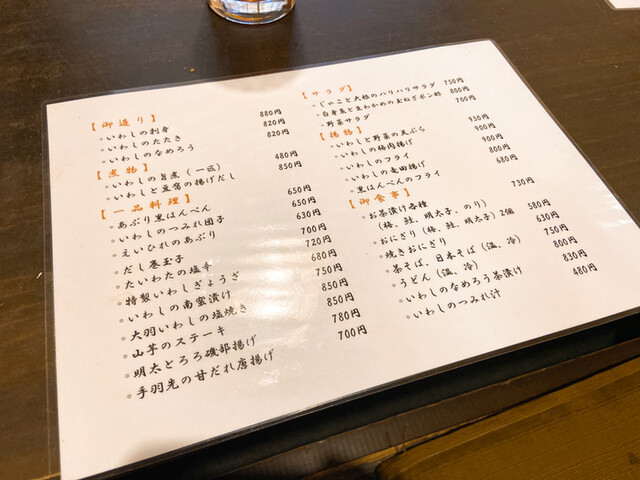 【御造り】
●いわしの刺身 880円
●いわしのたたき 820円
●いわしのなめろう 820円
【煮物】
●いわしの旨煮(一匹) 480円
●いわしと豆腐の揚げだし 850円
【一品料理】
●あぶり黒はんぺん 650円
●いわしのつみれ団子 650円
●えいひれのあぶり 630円
●だし巻玉子 700円
●たいわたの塩辛 720円
●特製いわしぎょうざ 680円
●いわしの南蛮漬け 750円
●大羽いわしの塩焼き 850円
●山芋のステーキ 850円
●明太とろろ磯部揚げ 780円
●手羽先の甘だれ唐揚げ 700円
【サラダ】
●じゃこと大根のハリハリサラダ 750円
●白身魚と生わかめの玉ねぎポン酢 800円
●野菜サラダ 700円
【揚物】
●いわしと野菜の天ぷら 930円
●いわしの梅肉揚げ 900円
●いわしのフライ 900円
●いわしの竜田揚げ 800円
●黒はんぺんのフライ 680円
【御食事】
●お茶漬け各種 730円
(梅、鮭、明太子、のり)
●おにぎり(梅、鮭、明太子)2個 580円
●焼きおにぎり 630円
●茶そば、日本そば(温、冷) 750円
●うどん(温、冷) 800円
●いわしのなめろう茶漬け 830円
●いわしのつみれ汁 480円